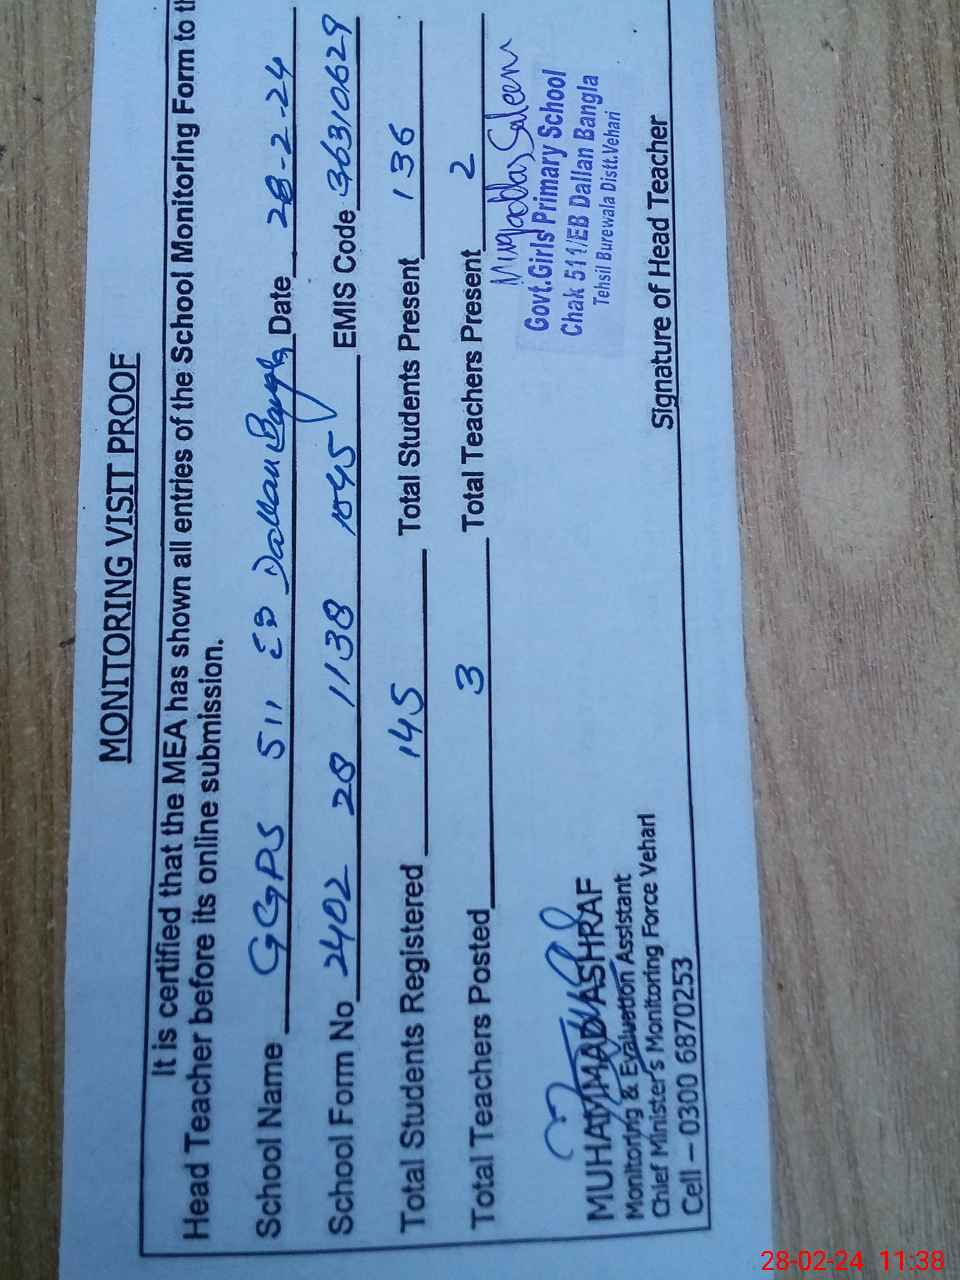 MONITORING VISIT PROOF
It is certified that the MEA has shown all entries of the School Monitoring Form to th
Head Teacher before its online submission.
School Name GGPS 511 EB Dallan Bangla Date 28-2-24
School Form No 2402 28 1138 1045 EMIS Code 36310629
Total Students Registered 145 Total Students Present 136
Total Teachers Posted 3 Total Teachers Present 2
Saleem
Govt.Girls Primary School
Chak 511/EB Dallan Bangla
Tehsil Burewala Distt.Vehari
MUHAMMAD ASHRAF
Monitoring & Evaluation Assistant
Chief Minister's Monitoring Force Vehari
Cell – 0300 6870253
Signature of Head Teacher
28-02-24 11:38